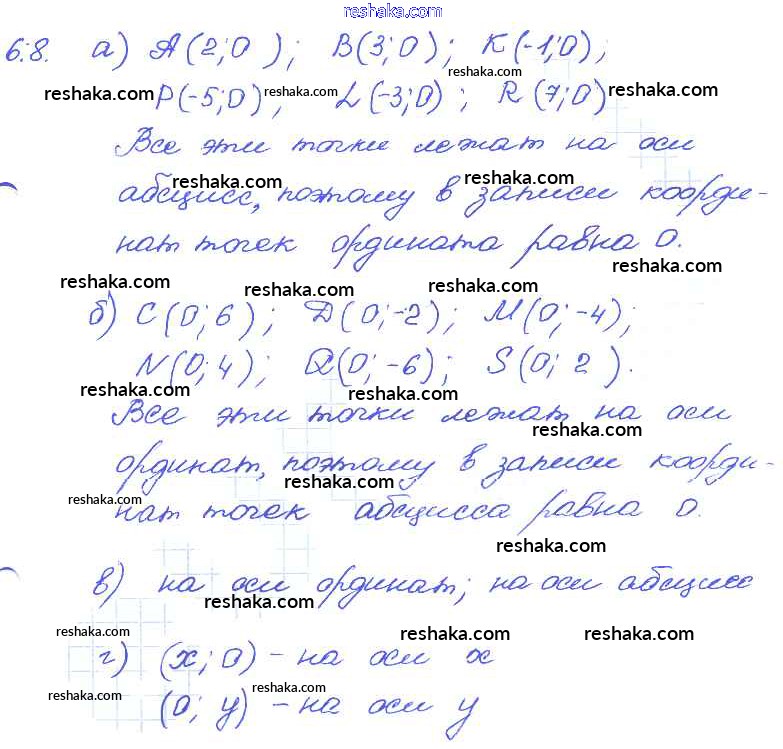 reshaka.com
6.8. а) A(2;0); B(3;0); K(-1;0);
reshaka.com
reshaka.com P(-5;0), reshaka.com L(-3;0); R(7;0) reshaka.com
Все эти точки лежат на оси
reshaka.com reshaka.com
абсцисс, поэтому в записи коорди-
нат точек ордината равна 0.
reshaka.com reshaka.com reshaka.com
reshaka.com
б) C(0;6); D(0;-2); M(0;-4);
N(0;4); Q(0;-6); S(0;2).
reshaka.com reshaka.com
Все эти точки лежат на оси
reshaka.com
ординат, поэтому в записи коорди-
reshaka.com reshaka.com
нат точек абсцисса равна 0.
reshaka.com
в) на оси ординат; на оси абсцисс
reshaka.com
reshaka.com reshaka.com reshaka.com
г) (x;0) - на оси x
reshaka.com reshaka.com
(0; y) - на оси y